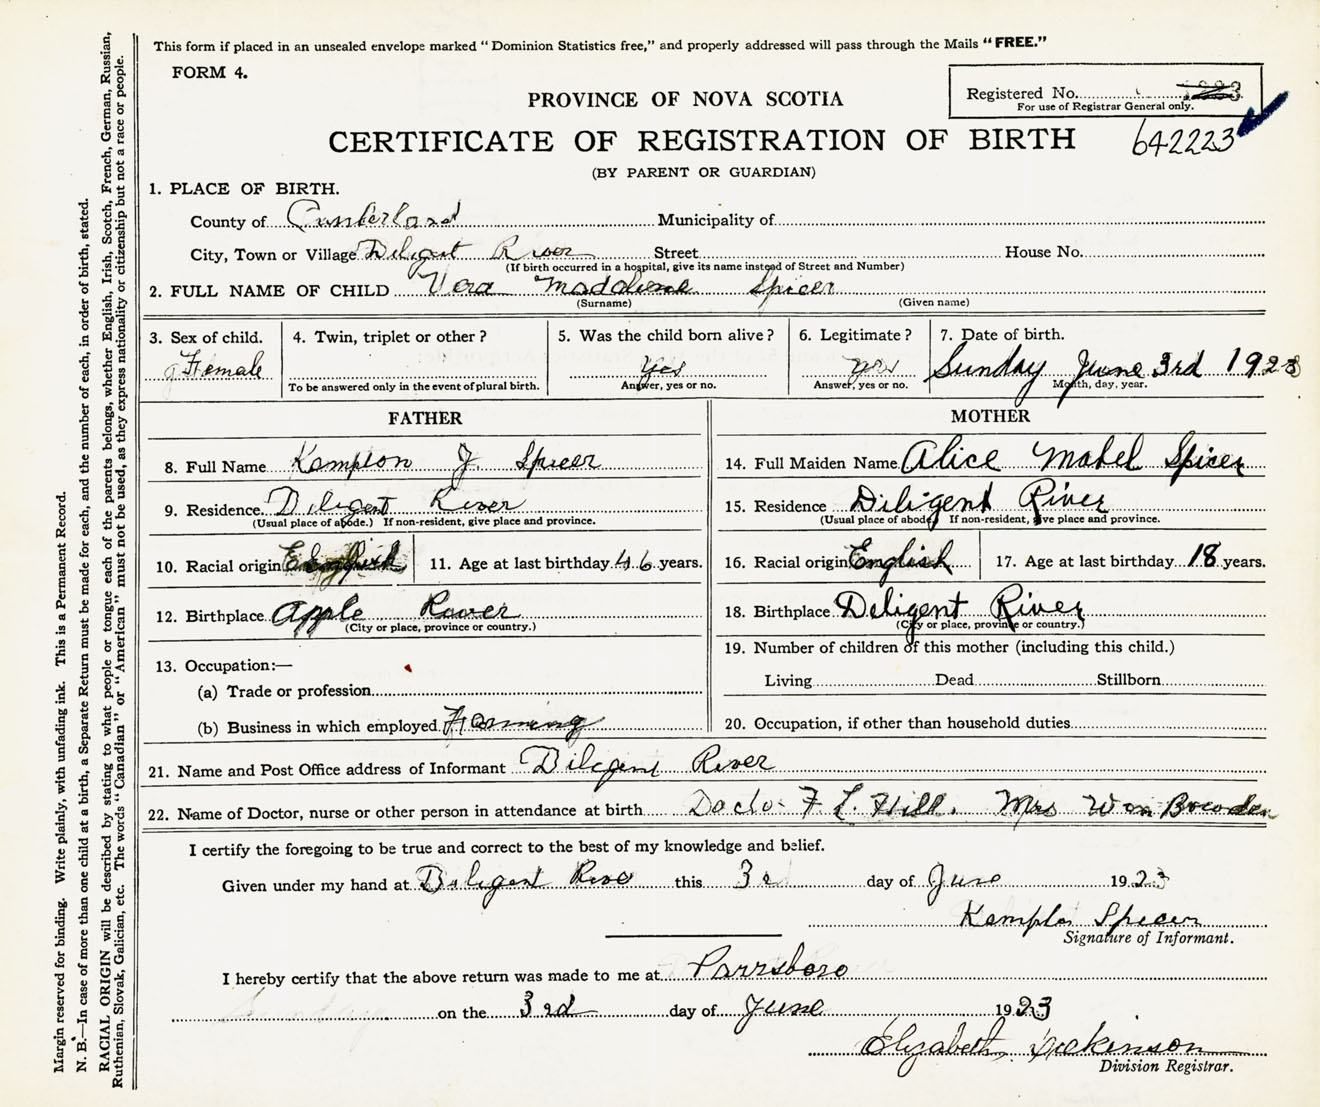 This form if placed in an unsealed envelope marked "Dominion Statistics free," and properly addressed will pass through the Mails "FREE."
FORM 4.
Registered No.
For use of Registrar General only.
PROVINCE OF NOVA SCOTIA
CERTIFICATE OF REGISTRATION OF BIRTH
642223
(BY PARENT OR GUARDIAN)
1. PLACE OF BIRTH.
County of Cumberland Municipality of
City, Town or Village Diligent River Street House No.
(If birth occurred in a hospital, give its name instead of Street and Number)
2. FULL NAME OF CHILD Vera Madaliene Spicer
(Surname) (Given name)
3. Sex of child. 4. Twin, triplet or other? 5. Was the child born alive? 6. Legitimate? 7. Date of birth.
Female Yes yes Sunday June 3rd 1923
To be answered only in the event of plural birth. Answer, yes or no. Answer, yes or no. Month, day, year.
FATHER
8. Full Name Kempton J. Spicer
9. Residence Diligent River
(Usual place of abode.) If non-resident, give place and province.
10. Racial origin English 11. Age at last birthday 46 years.
12. Birthplace Apple River
(City or place, province or country.)
13. Occupation:—
(a) Trade or profession
(b) Business in which employed Farming
MOTHER
14. Full Maiden Name Alice Mabel Spicer
15. Residence Diligent River
(Usual place of abode) If non-resident, give place and province.
16. Racial origin English 17. Age at last birthday 18 years.
18. Birthplace Diligent River
(City or place, province or country.)
19. Number of children of this mother (including this child.)
Living Dead Stillborn
20. Occupation, if other than household duties
21. Name and Post Office address of Informant Diligent River
22. Name of Doctor, nurse or other person in attendance at birth Docto F. L. Hill. Mrs Wm Bowden
I certify the foregoing to be true and correct to the best of my knowledge and belief.
Given under my hand at Diligent River this 3d day of June 1923
Kempton Spicer
Signature of Informant.
I hereby certify that the above return was made to me at Parrsboro
on the 3rd day of June 1923
Elizabeth Dickinson
Division Registrar.
Margin reserved for binding. Write plainly, with unfading ink. This is a Permanent Record.
N. B.—In case of more than one child at a birth, a Separate Return must be made for each, and the number of each, in order of birth, stated.
RACIAL ORIGIN will be described by stating to what people or tongue each of the parents belongs, whether English, Irish, Scotch, French, German, Russian,
Ruthenian, Slovak, Galician, etc. The words "Canadian" or "American" must not be used, as they express nationality or citizenship but not a race or people.